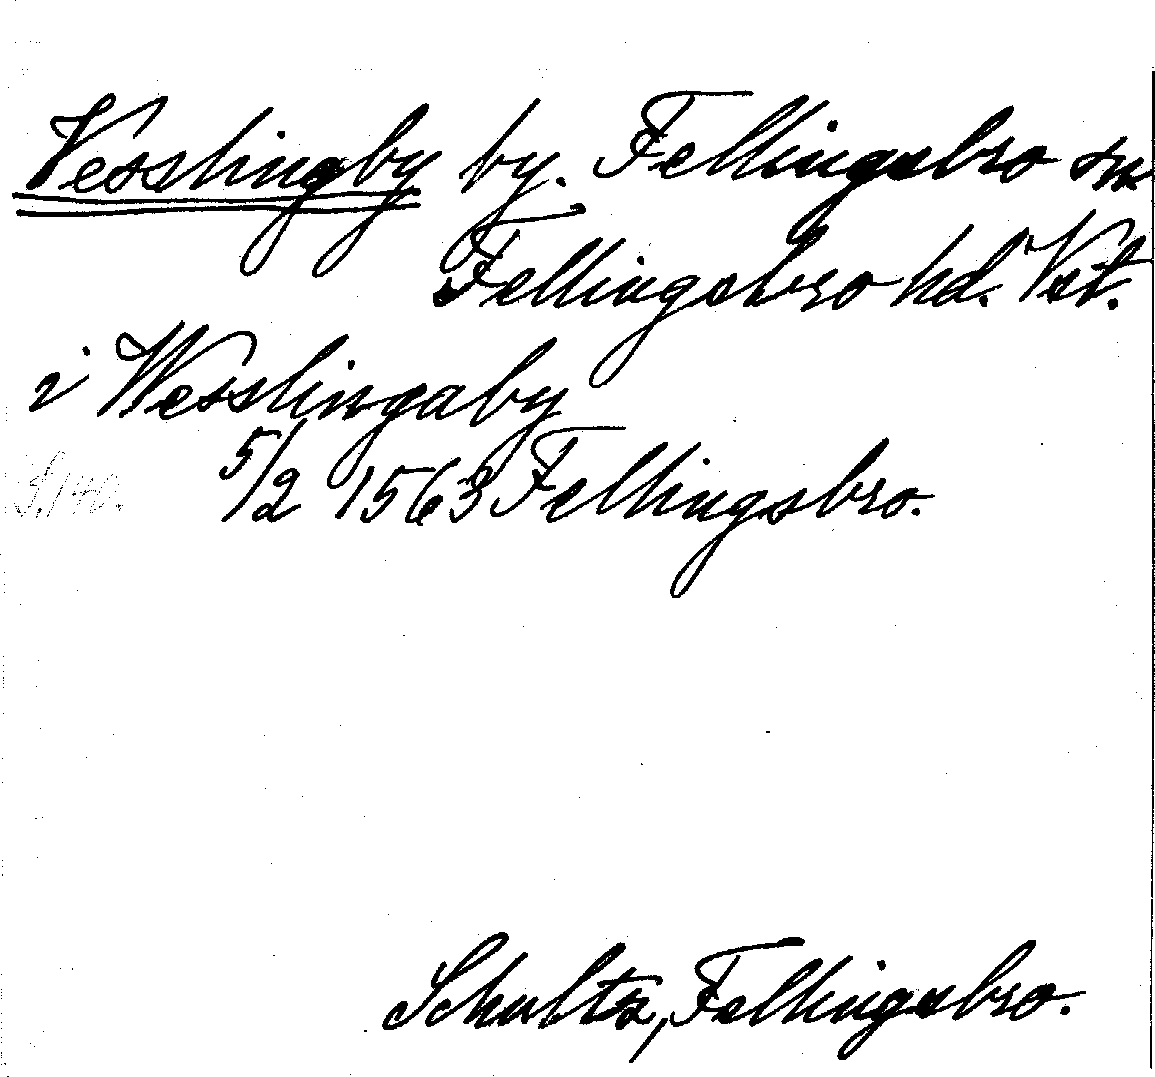 Vesslingby by. Fellingsbro sn
Fellingsbro hd. Vst.
i Wesslingaby
S. 140. 5/2 1563 Fellingsbro.
Schultz, Fellingsbro.